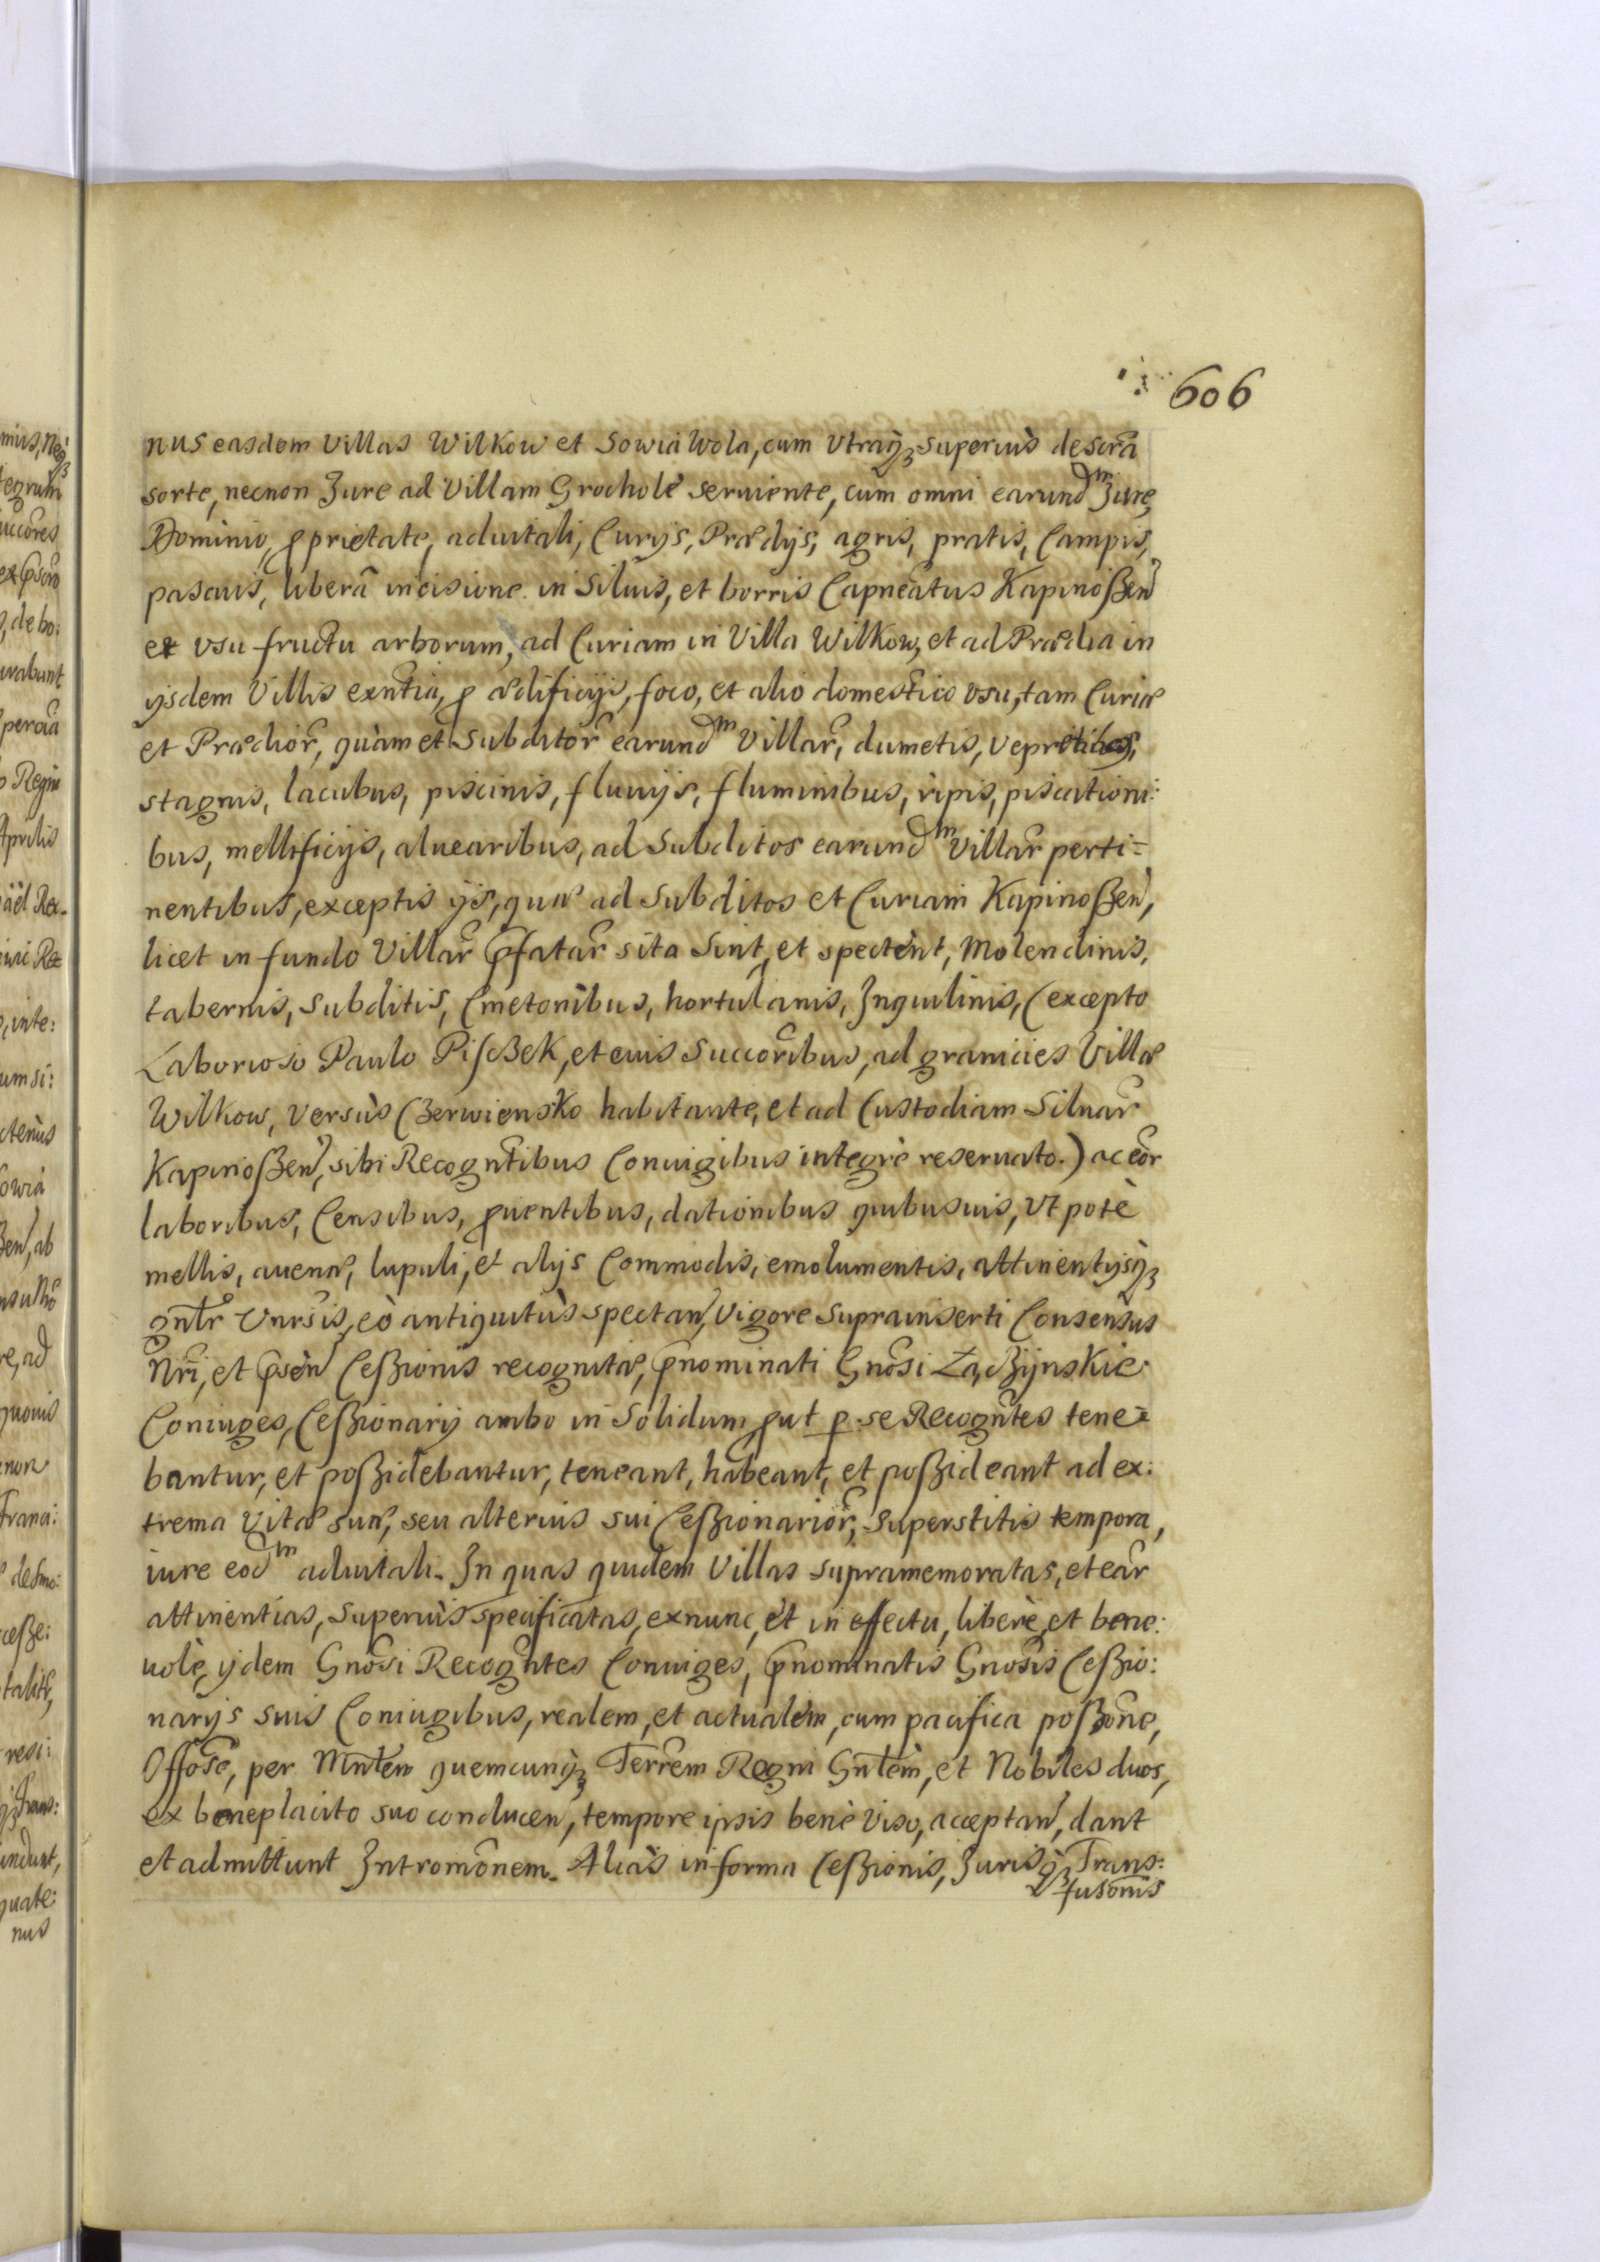 606
nus easdem Villas Wilkow et Sowia Wola, cum Vtraqꝫ superius descra
sorte, necnon Jure ad Villam Grochole seruiente, cum omni earundm Jure,
Dominio, ꝓprietate, aduitali, Curijs, Prædijs, agris, pratis, Campis,
pascuis, liberâ incisione in Siluis, et borris Capneatus Kapinoßen
et vsu fructu arborum, ad Curiam in Villa Wilkow, et ad Prædia in
ijsdem Villis exntia, ꝓ ædificijs, foco, et alio domestico vsu, tam Curiæ
et Prædior, quàm et Subditor earundm Villar, dumetis, vepretibus,
stagnis, lacubus, piscinis, fluuijs, fluminibus, ripis, piscationi:
bus, mellificijs, aluearibus, ad Subditos earundm Villar perti=
nentibus, exceptis ijs, quæ ad Subditos et Curiam Kapinoßen,
licet in fundo Villar p̃fatar sita Sint, et spectent, Molendinis,
tabernis, subditis, Cmetonibus, hortulanis, Inquilinis, (excepto
Laborioso Paulo Pisczek, et eius Succoribus, ad granicies Villæ
Wilkow, versùs Czerwiensko habitante, et ad Custodiam Siluar
Kapinoßen, sibi Recogntibus Coniugibus integrè reseruato.) ac eor
laboribus, Censibus, ꝓuentibus, dationibus quibusuis, Vt potè
mellis, auenæ, lupuli, et alijs Commodis, emolumentis, attinentijsqꝫ
gnlr Vnrsis, eò antiquitùs spectan, Vigore suprainserti Consensus
Nri, et p̃sen Ceßionis recognitæ, p̃nominati Gnosi Zaczynskie
Coniuges, Ceßionarij ambo in Solidum ꝓut ꝑ se Recogntes tene=
bantur, et poßidebantur, teneant, habeant, et poßideant ad ex:
trema Vitæ suæ, seu alterius sui Ceßionarior, superstitis tempora,
iure eodm aduitali. In quas quidem Villas supramemoratas, et ear
attinentias, superiùs specificatas, exnunc, et in effectu, liberè, et bene:
uolè, ijdem Gnosi Recogntes Coniuges, p̃nominatis Gnosis Ceßio:
narijs suis Coniugibus, realem, et actualem, cum pacifica poßone,
Offose, per Mnlem quemcunqꝫ Terrem Regni Gnlem, et Nobiles duos,
ex beneplacito suo conducen, tempore ipsis benè Viso, acceptan, dant
et admittunt Intromonem. Aliàs in forma Ceßionis, Jurisqꝫ Trans:
fusonis